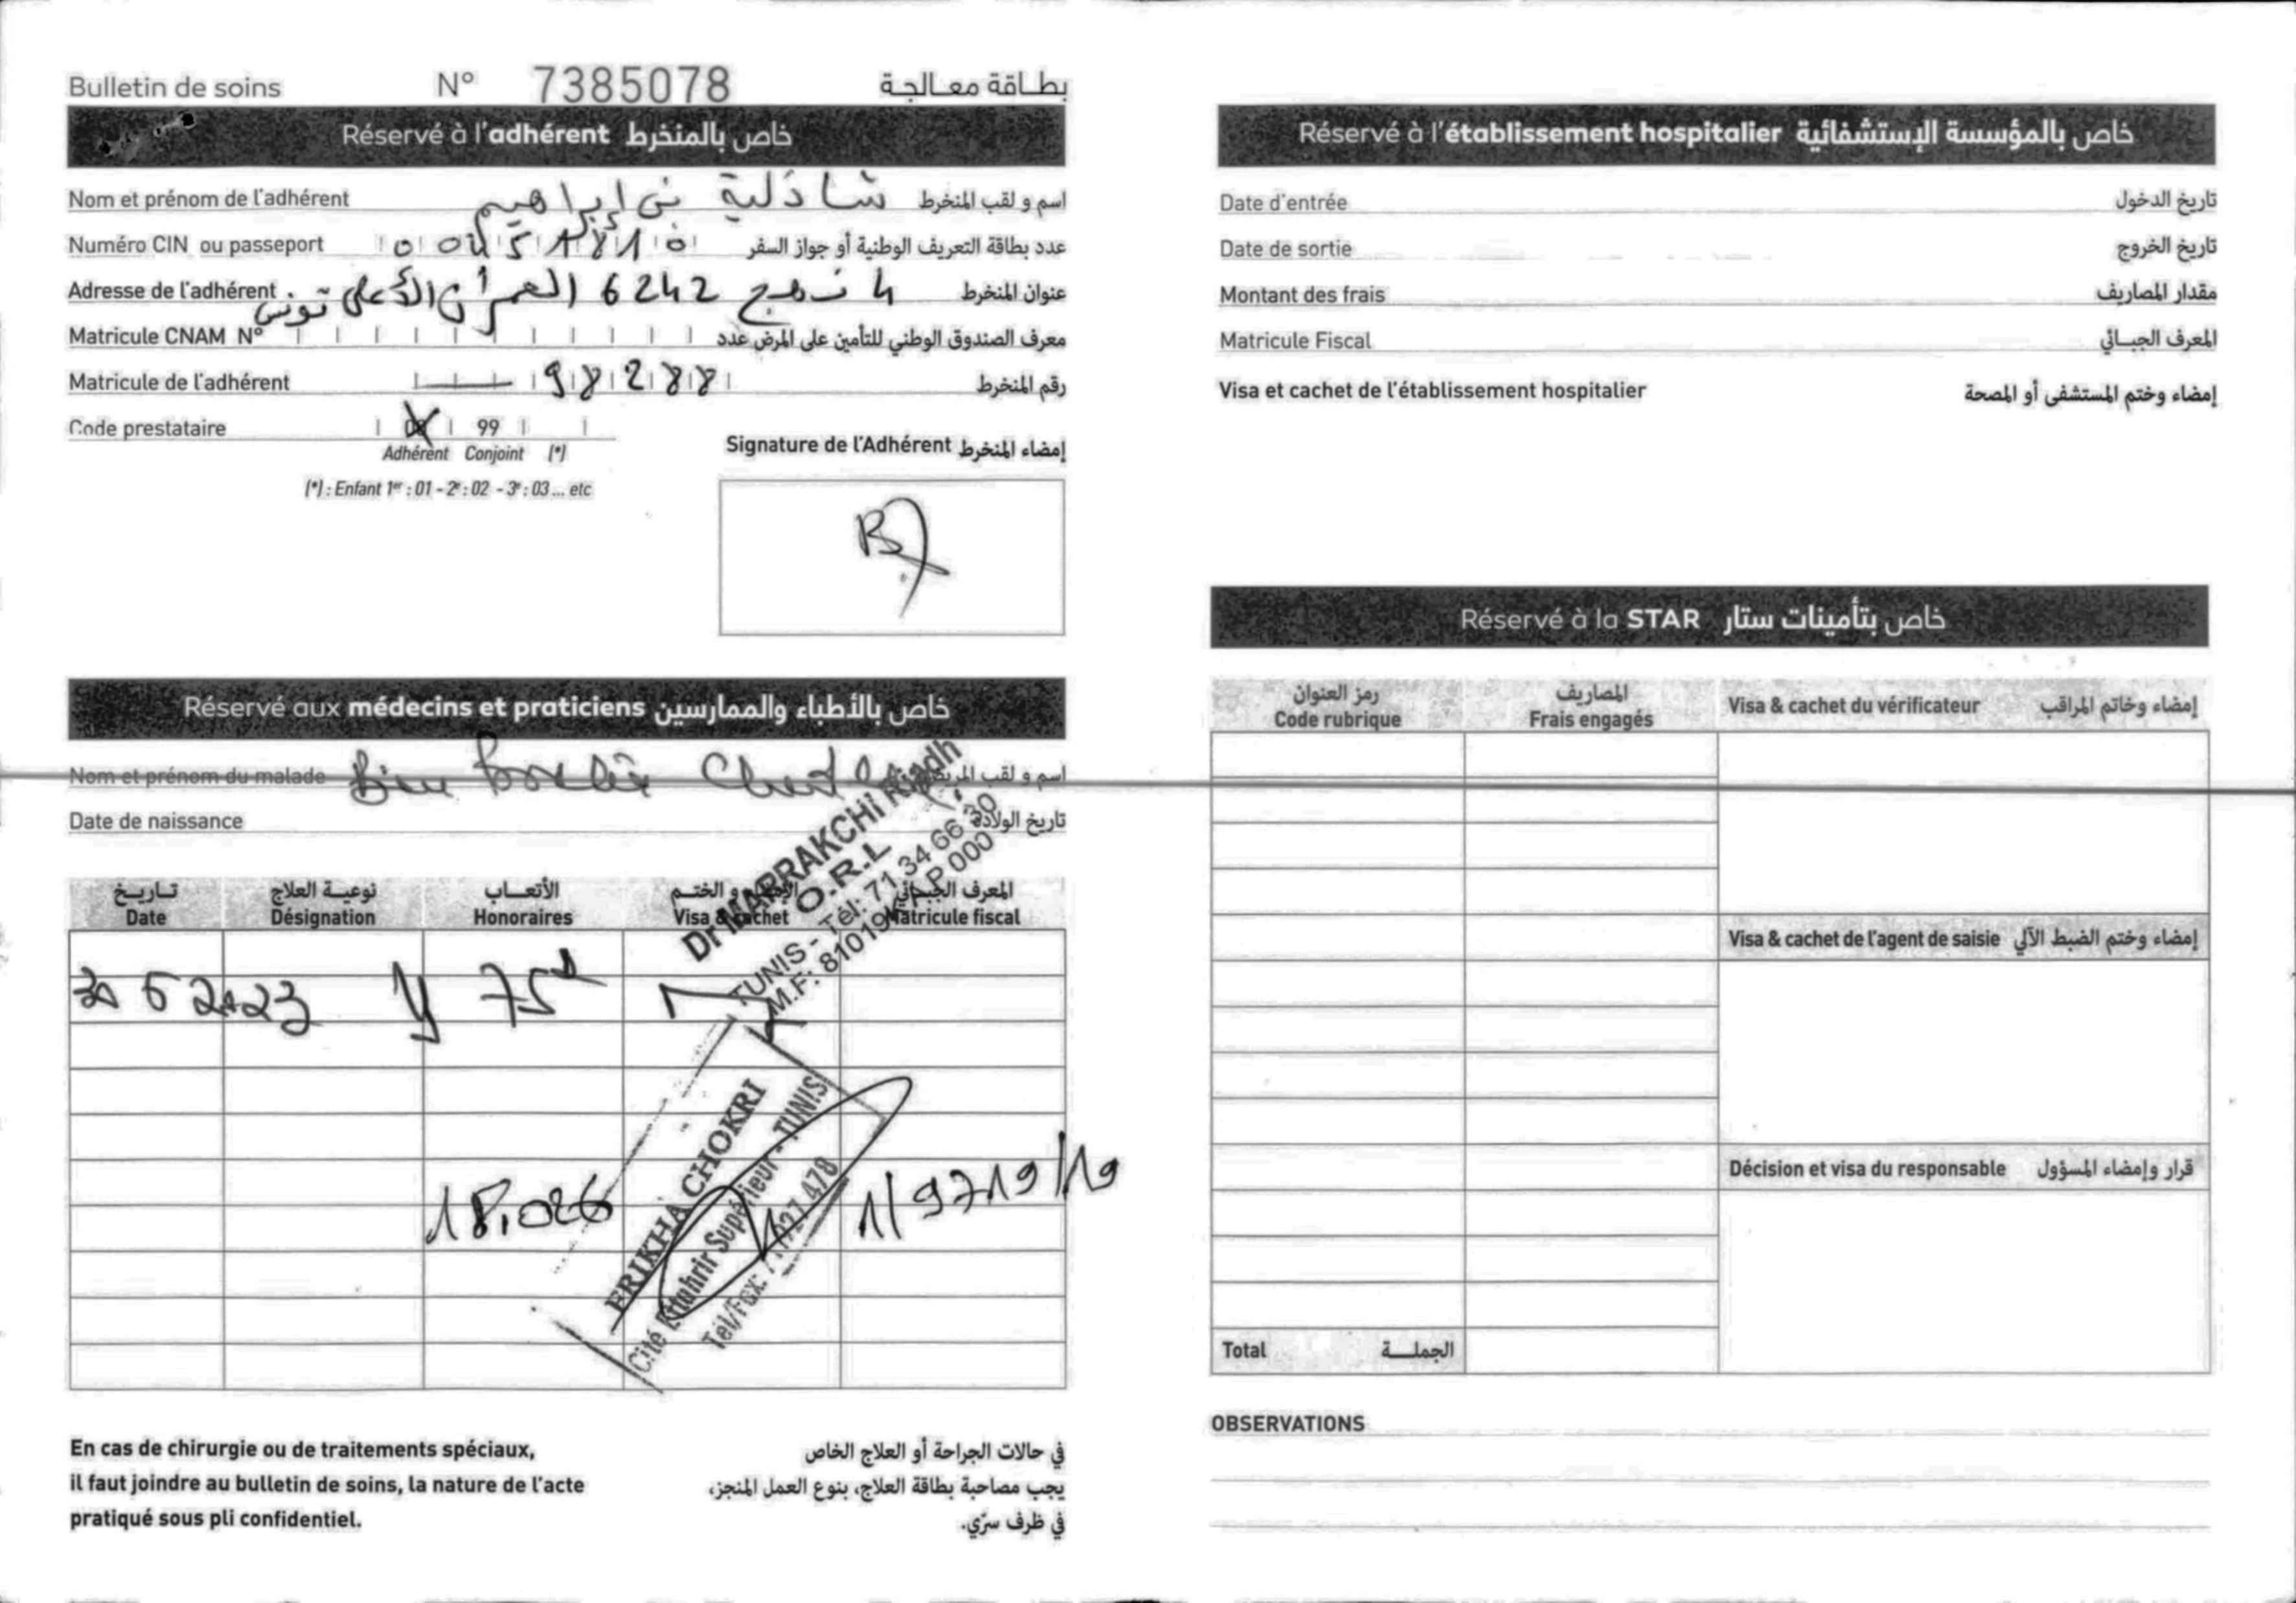 Bulletin de soins N° 7385078 بطاقة معالجة
Réservé à l'adhérent خاص بالمنخرط
Nom et prénom de l'adhérent شاذلية بن إبراهيم اسم و لقب المنخرط
Numéro CIN ou passeport عدد بطاقة التعريف الوطنية أو جواز السفر
Adresse de l'adhérent 4 نهج 6242 العمران الأعلى تونس عنوان المنخرط
Matricule CNAM N° معرف الصندوق الوطني للتأمين على المرض عدد
Matricule de l'adhérent 98288 رقم المنخرط
Code prestataire 99
Adhérent Conjoint (*)
(*) : Enfant 1er : 01 - 2e : 02 - 3e : 03 ... etc
Signature de l'Adhérent إمضاء المنخرط
Réservé aux médecins et praticiens خاص بالأطباء والممارسين
Nom et prénom du malade اسم و لقب المريض
Date de naissance تاريخ الولادة
Dr MARRAKCHI Riadh
O.R.L
TUNIS - Tél: 71 34 66 30
M.F: 81019 P 000
تاريخ نوعية العلاج الأتعاب الإمضاء و الختم المعرف الجبائي
Date Désignation Honoraires Visa & cachet Matricule fiscal
75
18,026 1/9719/19
ERIKHA CHOKRI
Cité Ettahrir Supérieur - TUNIS
Tél/Fax: 71 927 478
En cas de chirurgie ou de traitements spéciaux,
il faut joindre au bulletin de soins, la nature de l'acte
pratiqué sous pli confidentiel.
في حالات الجراحة أو العلاج الخاص
يجب مصاحبة بطاقة العلاج، بنوع العمل المنجز،
في ظرف سرّي.
Réservé à l'établissement hospitalier خاص بالمؤسسة الإستشفائية
Date d'entrée تاريخ الدخول
Date de sortie تاريخ الخروج
Montant des frais مقدار المصاريف
Matricule Fiscal المعرف الجبائي
Visa et cachet de l'établissement hospitalier إمضاء وختم المستشفى أو المصحة
Réservé à la STAR خاص بتأمينات ستار
رمز العنوان المصاريف
Code rubrique Frais engagés Visa & cachet du vérificateur إمضاء وخاتم المراقب
Visa & cachet de l'agent de saisie إمضاء وختم الضبط الآلي
Décision et visa du responsable قرار وإمضاء المسؤول
Total الجملة
OBSERVATIONS